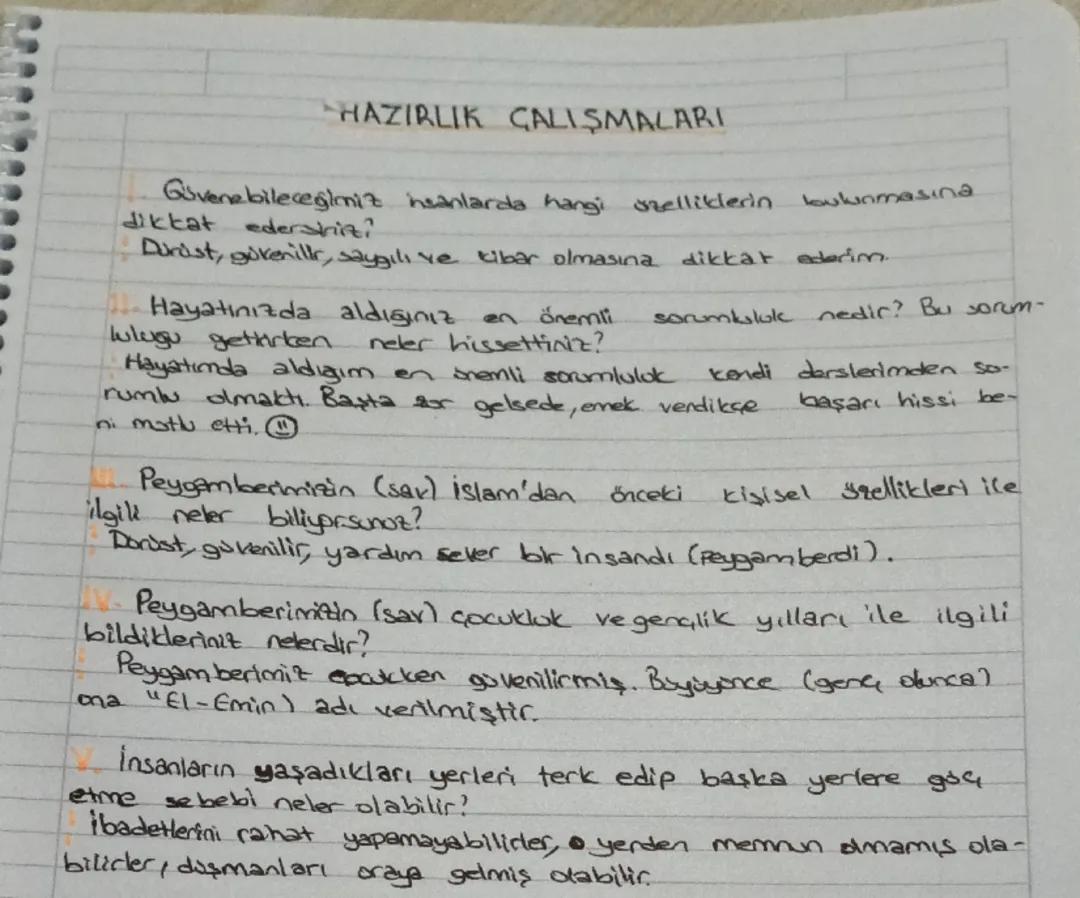 HAZIRLIK ÇALIŞMALARI
I. Güvenebileceğimiz insanlarda hangi özelliklerin bulunmasına
dikkat edersiniz?
Dürüst, güvenilir, saygılı ve kibar olmasına dikkat ederim.
II. Hayatınızda aldığınız en önemli sorumluluk nedir? Bu sorum-
luluğu getirirken neler hissettiniz?
Hayatımda aldığım en önemli sorumluluk kendi derslerimden so-
rumlu olmaktı. Başta zor gelsede, emek verdikçe başarı hissi be-
ni mutlu etti.
III. Peygamberimizin (sav) İslam'dan önceki kişisel özellikleri ile
ilgili neler biliyorsunuz?
Dürüst, güvenilir, yardım sever bir insandı (Peygamberdi).
IV. Peygamberimizin (sav) çocukluk ve gençlik yılları ile ilgili
bildikleriniz nelerdir?
Peygamberimiz çocukken güvenilirmiş. Büyüyünce (genç olunca)
ona "El-Emin) adı verilmiştir.
V. İnsanların yaşadıkları yerleri terk edip başka yerlere göç
etme sebebi neler olabilir?
İbadetlerini rahat yapamayabilirler, o yerden memnun olmamış ola-
bilirler, düşmanları oraya gelmiş olabilir.